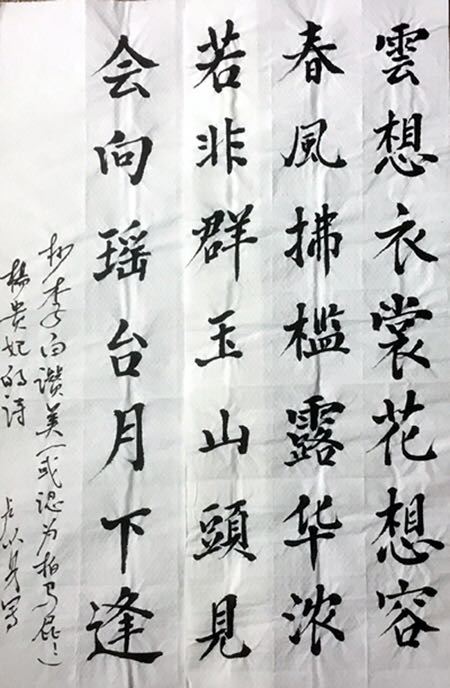 雲想衣裳花想容
春風拂槛露华浓
若非群玉山頭見
会向瑶台月下逢
抄李白讚美(或認为拍马屁!)
楊贵妃的詩